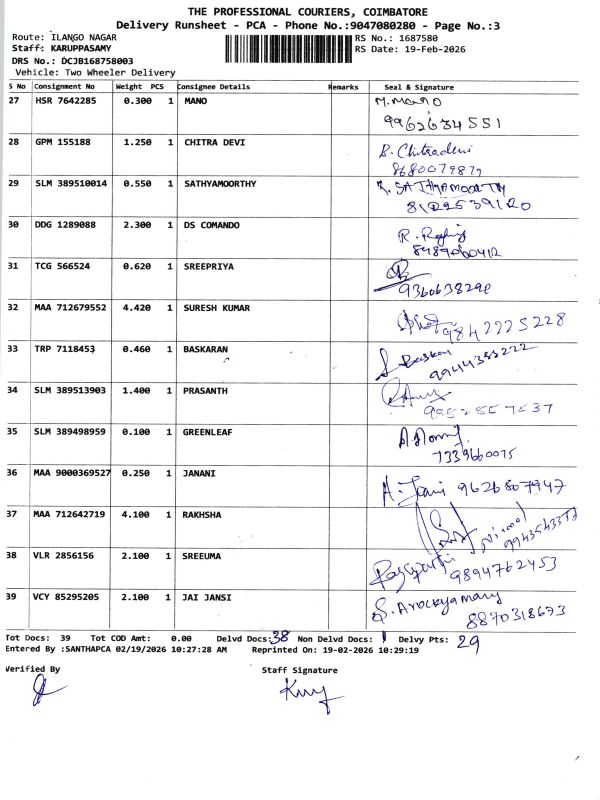 THE PROFESSIONAL COURIERS, COIMBATORE
Delivery Runsheet - PCA - Phone No.:9047080280 - Page No.:3
Route: ILANGO NAGAR
RS No.: 1687580
Staff: KARUPPASAMY
RS Date: 19-Feb-2026
DRS No.: DCJB168758003
Vehicle: Two Wheeler Delivery
S No Consignment No Weight PCS Consignee Details Remarks Seal & Signature
27 HSR 7642285 0.300 1 MANO M. Mano
9962634551
28 GPM 155188 1.250 1 CHITRA DEVI B. Chitradevi
29 SLM 389510014 0.550 1 SATHYAMOORTHY R. SATHYAMOORTHY
30 DDG 1289088 2.300 1 DS COMANDO
31 TCG 566524 0.620 1 SREEPRIYA
32 MAA 712679552 4.420 1 SURESH KUMAR
9842225228
33 TRP 7118453 0.460 1 BASKARAN
9944355222
34 SLM 389513903 1.400 1 PRASANTH
35 SLM 389498959 0.100 1 GREENLEAF
7339660075
36 MAA 9000369527 0.250 1 JANANI 9626807947
37 MAA 712642719 4.100 1 RAKHSHA
38 VLR 2856156 2.100 1 SREEUMA
9894762453
39 VCY 85295205 2.100 1 JAI JANSI S. Arockyamary
8870318673
Tot Docs: 39 Tot COD Amt: 0.00 Delvd Docs: 38 Non Delvd Docs: 1 Delvy Pts: 29
Entered By :SANTHAPCA 02/19/2026 10:27:28 AM Reprinted On: 19-02-2026 10:29:19
Verified By Staff Signature